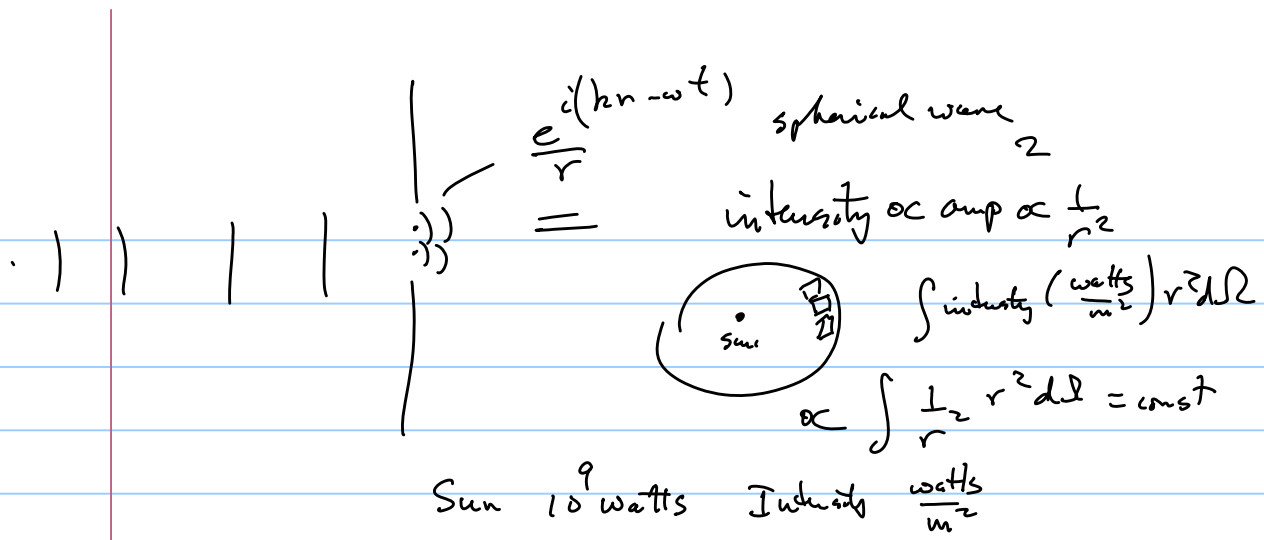 e^{i(kr - ωt)} / r
spherical wave
intensity ∝ amp² ∝ 1/r²
sun
∫ intensity (watts/m²) r² dΩ
∝ ∫ 1/r² r² dΩ = const
Sun 10⁹ watts Intensity watts/m²